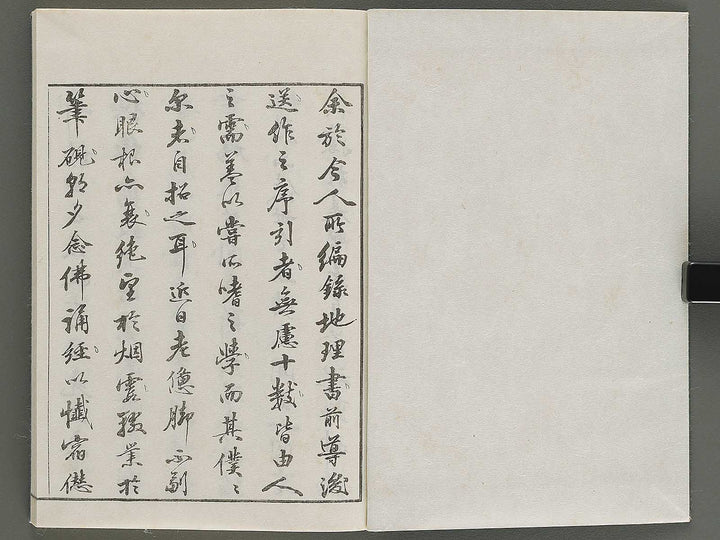 余於今人所編録地理書前導後
送作之序引者無慮十數皆由人
之需蓋以嘗所嗜之學而其僕〻
尔者自招之耳近日老憊脚不副
心眼根亦衰絶望於烟霞輟業於
筆硯朝夕念佛誦經以懺宿